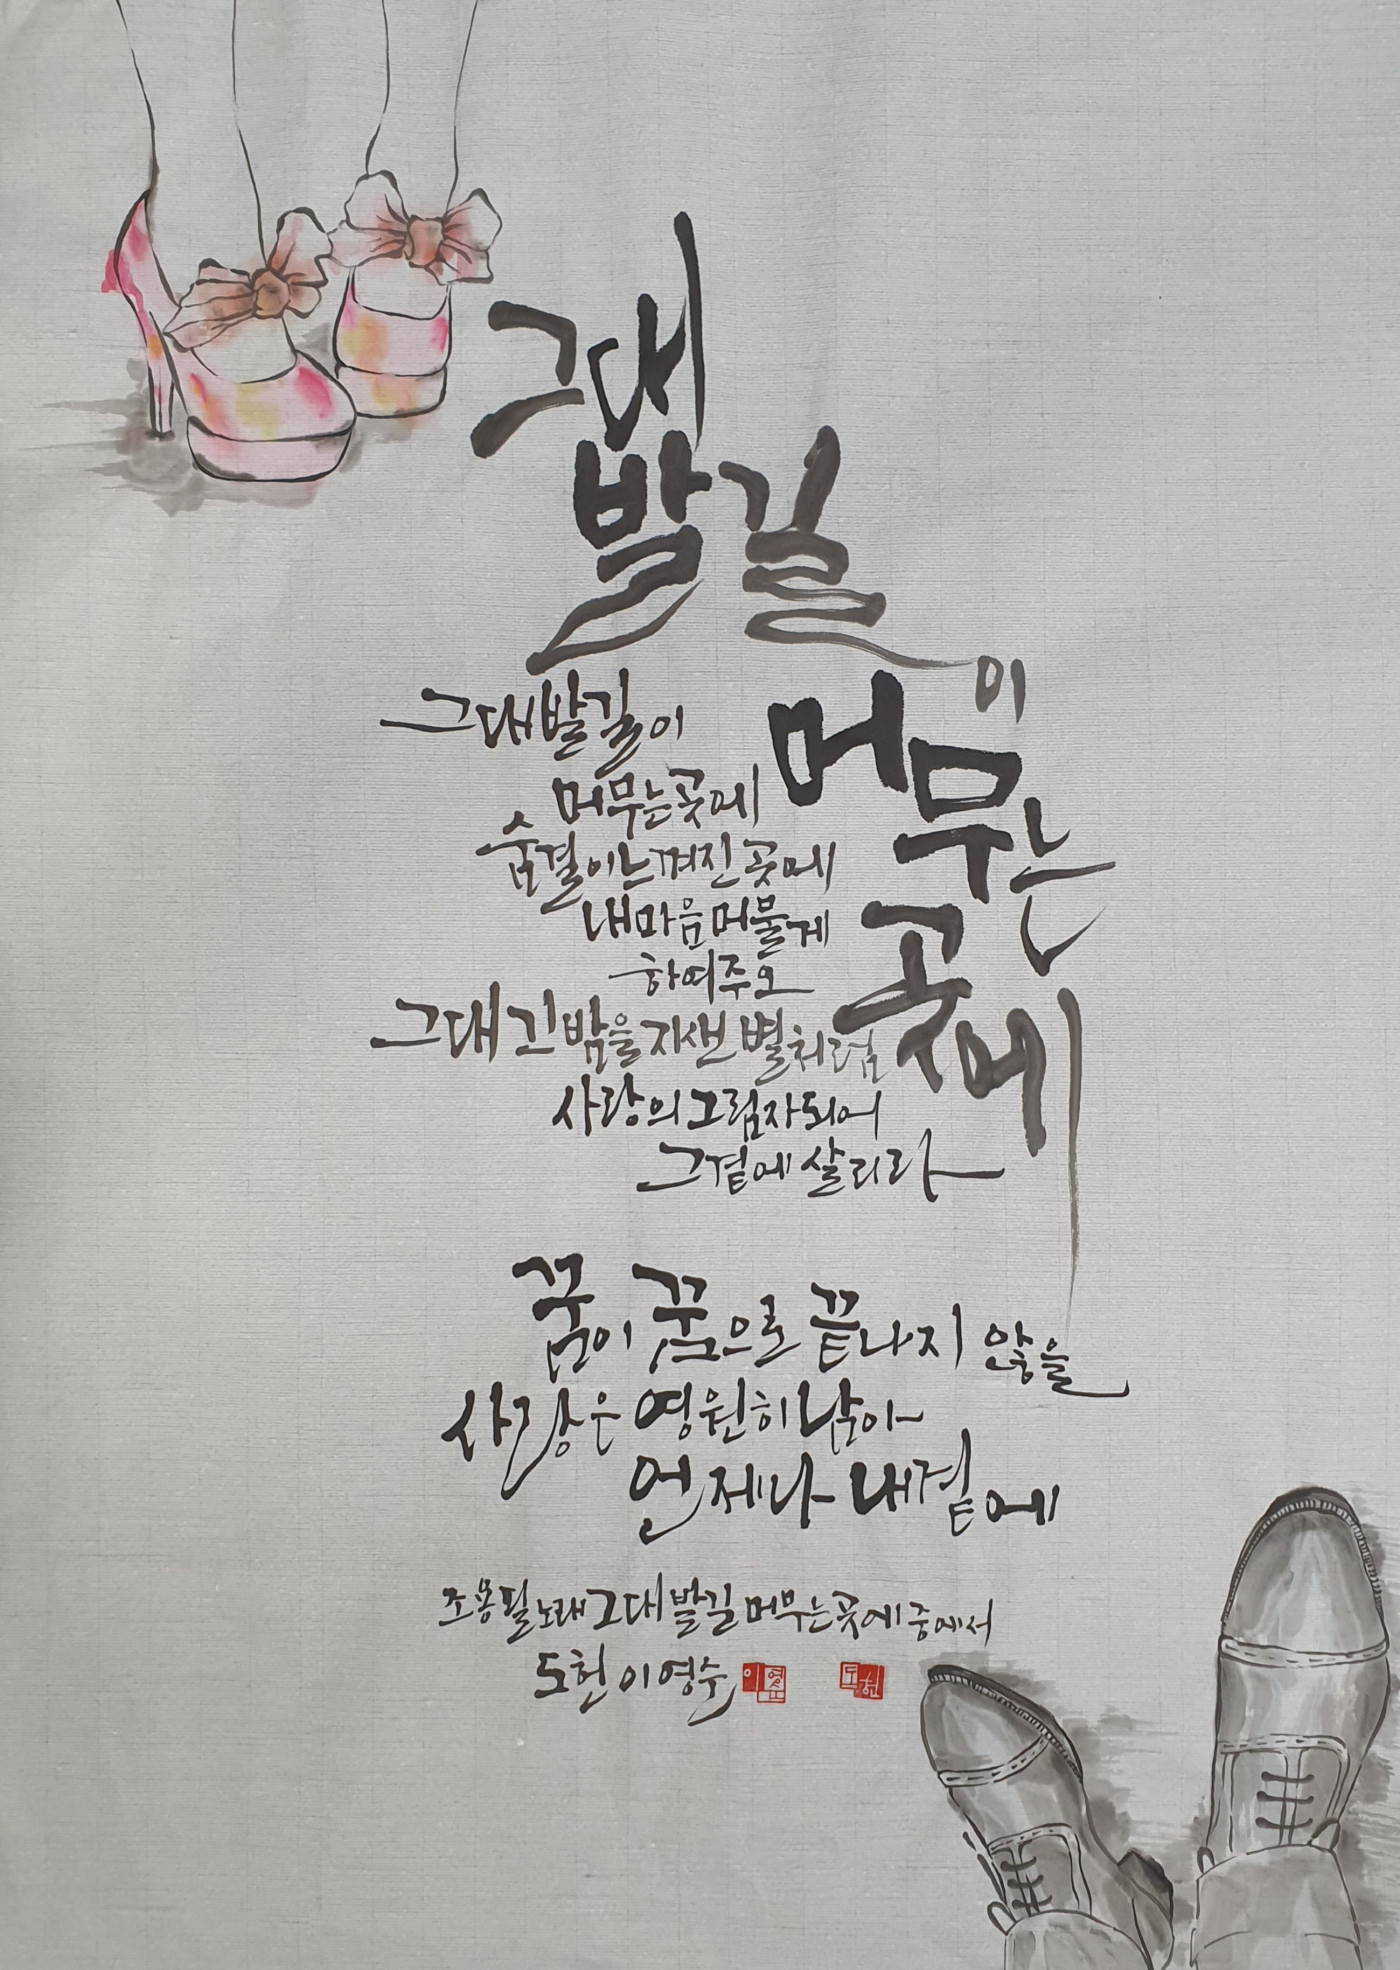 그대
발길이
머무는
곳에
그대 발길이
머무는 곳에
숨결이 느껴진 곳에
내 마음 머물게
하여주오
그대 긴 밤을 지샌 별처럼
사랑의 그림자 되어
그 곁에 살리라
꿈이 꿈으로 끝나지 않을
사랑은 영원히 남아
언제나 내 곁에
조용필 노래 그대 발길 머무는 곳에 중에서
도헌 이영수
이영수
도헌